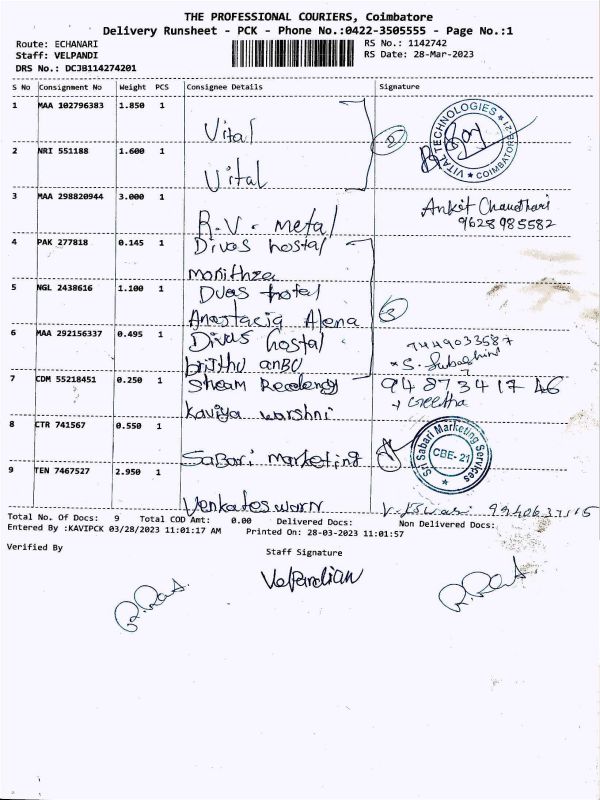 THE PROFESSIONAL COURIERS, Coimbatore
Delivery Runsheet - PCK - Phone No.:0422-3505555 - Page No.:1
Route: ECHANARI RS No.: 1142742
Staff: VELPANDI RS Date: 28-Mar-2023
DRS No.: DCJB114274201
S No Consignment No Weight PCS Consignee Details Signature
1 MAA 102796383 1.850 1
Vital
VITAL TECHNOLOGIES ★ COIMBATORE-21 ★
2 NRI 551188 1.600 1
Vital
3 MAA 298820944 3.000 1
R.V. metal
Ankit Chaudhari
9628985582
4 PAK 277818 0.145 1 Divas hostal
monithza
5 NGL 2438616 1.100 1 Duas hotel
Anastacia Alena
6 MAA 292156337 0.495 1 Divas hostal
brijthu anBU
7449033587
S. Subashini
7 CDM 55218451 0.250 1 Sheam Recelency
kaviya warshni
9487341746
Geetha
8 CTR 741567 0.550 1
Sabari marketing
Sri Sabari Marketing Services
CBE- 21
★
9 TEN 7467527 2.950 1
Venkateswarn
Total No. Of Docs: 9 Total COD Amt: 0.00 Delivered Docs: Non Delivered Docs:
Entered By :KAVIPCK 03/28/2023 11:01:17 AM Printed On: 28-03-2023 11:01:57
Verified By Staff Signature
Velpandian